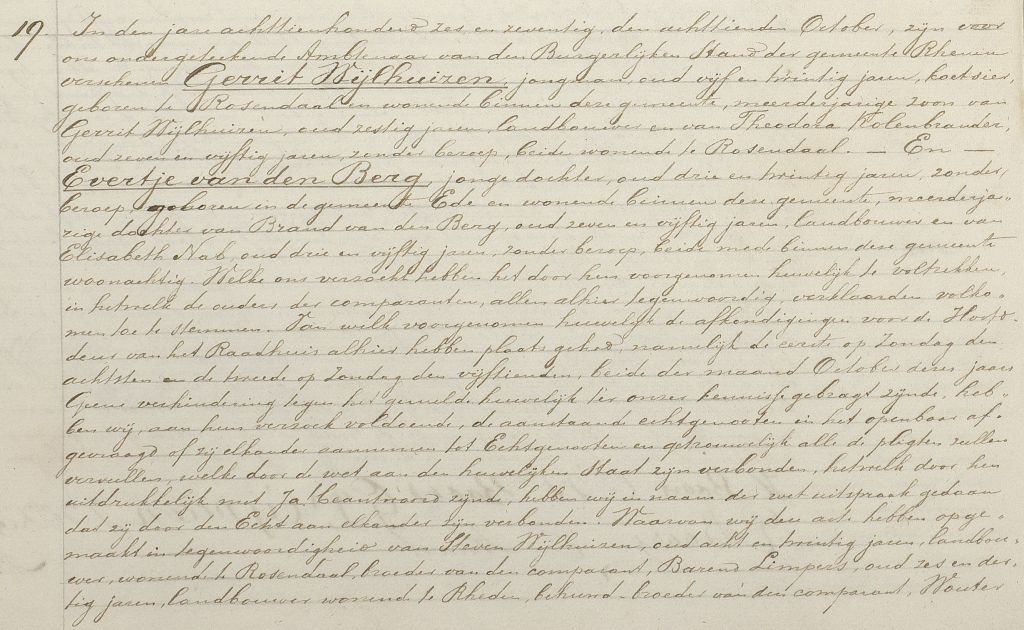 19. In den jare achttienhonderd zes en zeventig, den achttienden October, zijn voor
ons ondergeteekende Ambtenaar van den Burgerlijken Stand der gemeente Rhenen
verschenen Gerrit Wijlhuizen, jongman, oud vijf en twintig jaren, koetsier,
geboren te Rosendaal en wonende binnen deze gemeente, meerderjarige zoon van
Gerrit Wijlhuizen, oud zestig jaren, landbouwer en van Theodora Kolenbrander,
oud zeven en vijftig jaren, zonder beroep, beide wonende te Rosendaal. — En —
Evertje van den Berg, jonge dochter, oud drie en twintig jaren, zonder
beroep, geboren in de gemeente Ede en wonende binnen deze gemeente, meerderja„
rige dochter van Brand van den Berg, oud zeven en vijftig jaren, landbouwer en van
Elisabeth Nab, oud drie en vijftig jaren, zonder beroep, beide mede binnen deze gemeente
woonachtig. Welke ons verzocht hebben het door hun voorgenomen huwelijk te voltrekken,
in hetwelk de ouders der comparanten, allen alhier tegenwoordig, verklaarden volko„
men toe te stemmen. Van welk voorgenomen huwelijk de afkondigingen voor de Hoofd-
deur van het Raadhuis alhier hebben plaats gehad, namelijk de eerste op Zondag den
achtsten en de tweede op Zondag den vijftienden, beide der maand October dezes jaars
Geene verhindering tegen het gemelde huwelijk ter onzer kennisse gebragt zijnde, heb„
ben wij, aan hun verzoek voldoende, de aanstaande echtgenooten in het openbaar af„
gevraagd of zij elkander aannemen tot Echtgenooten en getrouwelijk alle de pligten zullen
vervullen, welke door de wet aan den huwelijken Staat zijn verbonden, hetwelk door hen
uitdrukkelijk met Ja, beantwoord zijnde, hebben wij in naam der wet uitspraak gedaan
dat zij door den Echt aan elkander zijn verbonden. Waarvan wij deze acte hebben opge„
maakt in tegenwoordigheid van Steven Wijlhuizen, oud acht en twintig jaren, landbou„
wer, wonende te Rosendaal, broeder van den comparant, Barend Limpers, oud zes en der„
tig jaren, landbouwer wonend te Rheden, behuwd-broeder van den comparant, Wouter